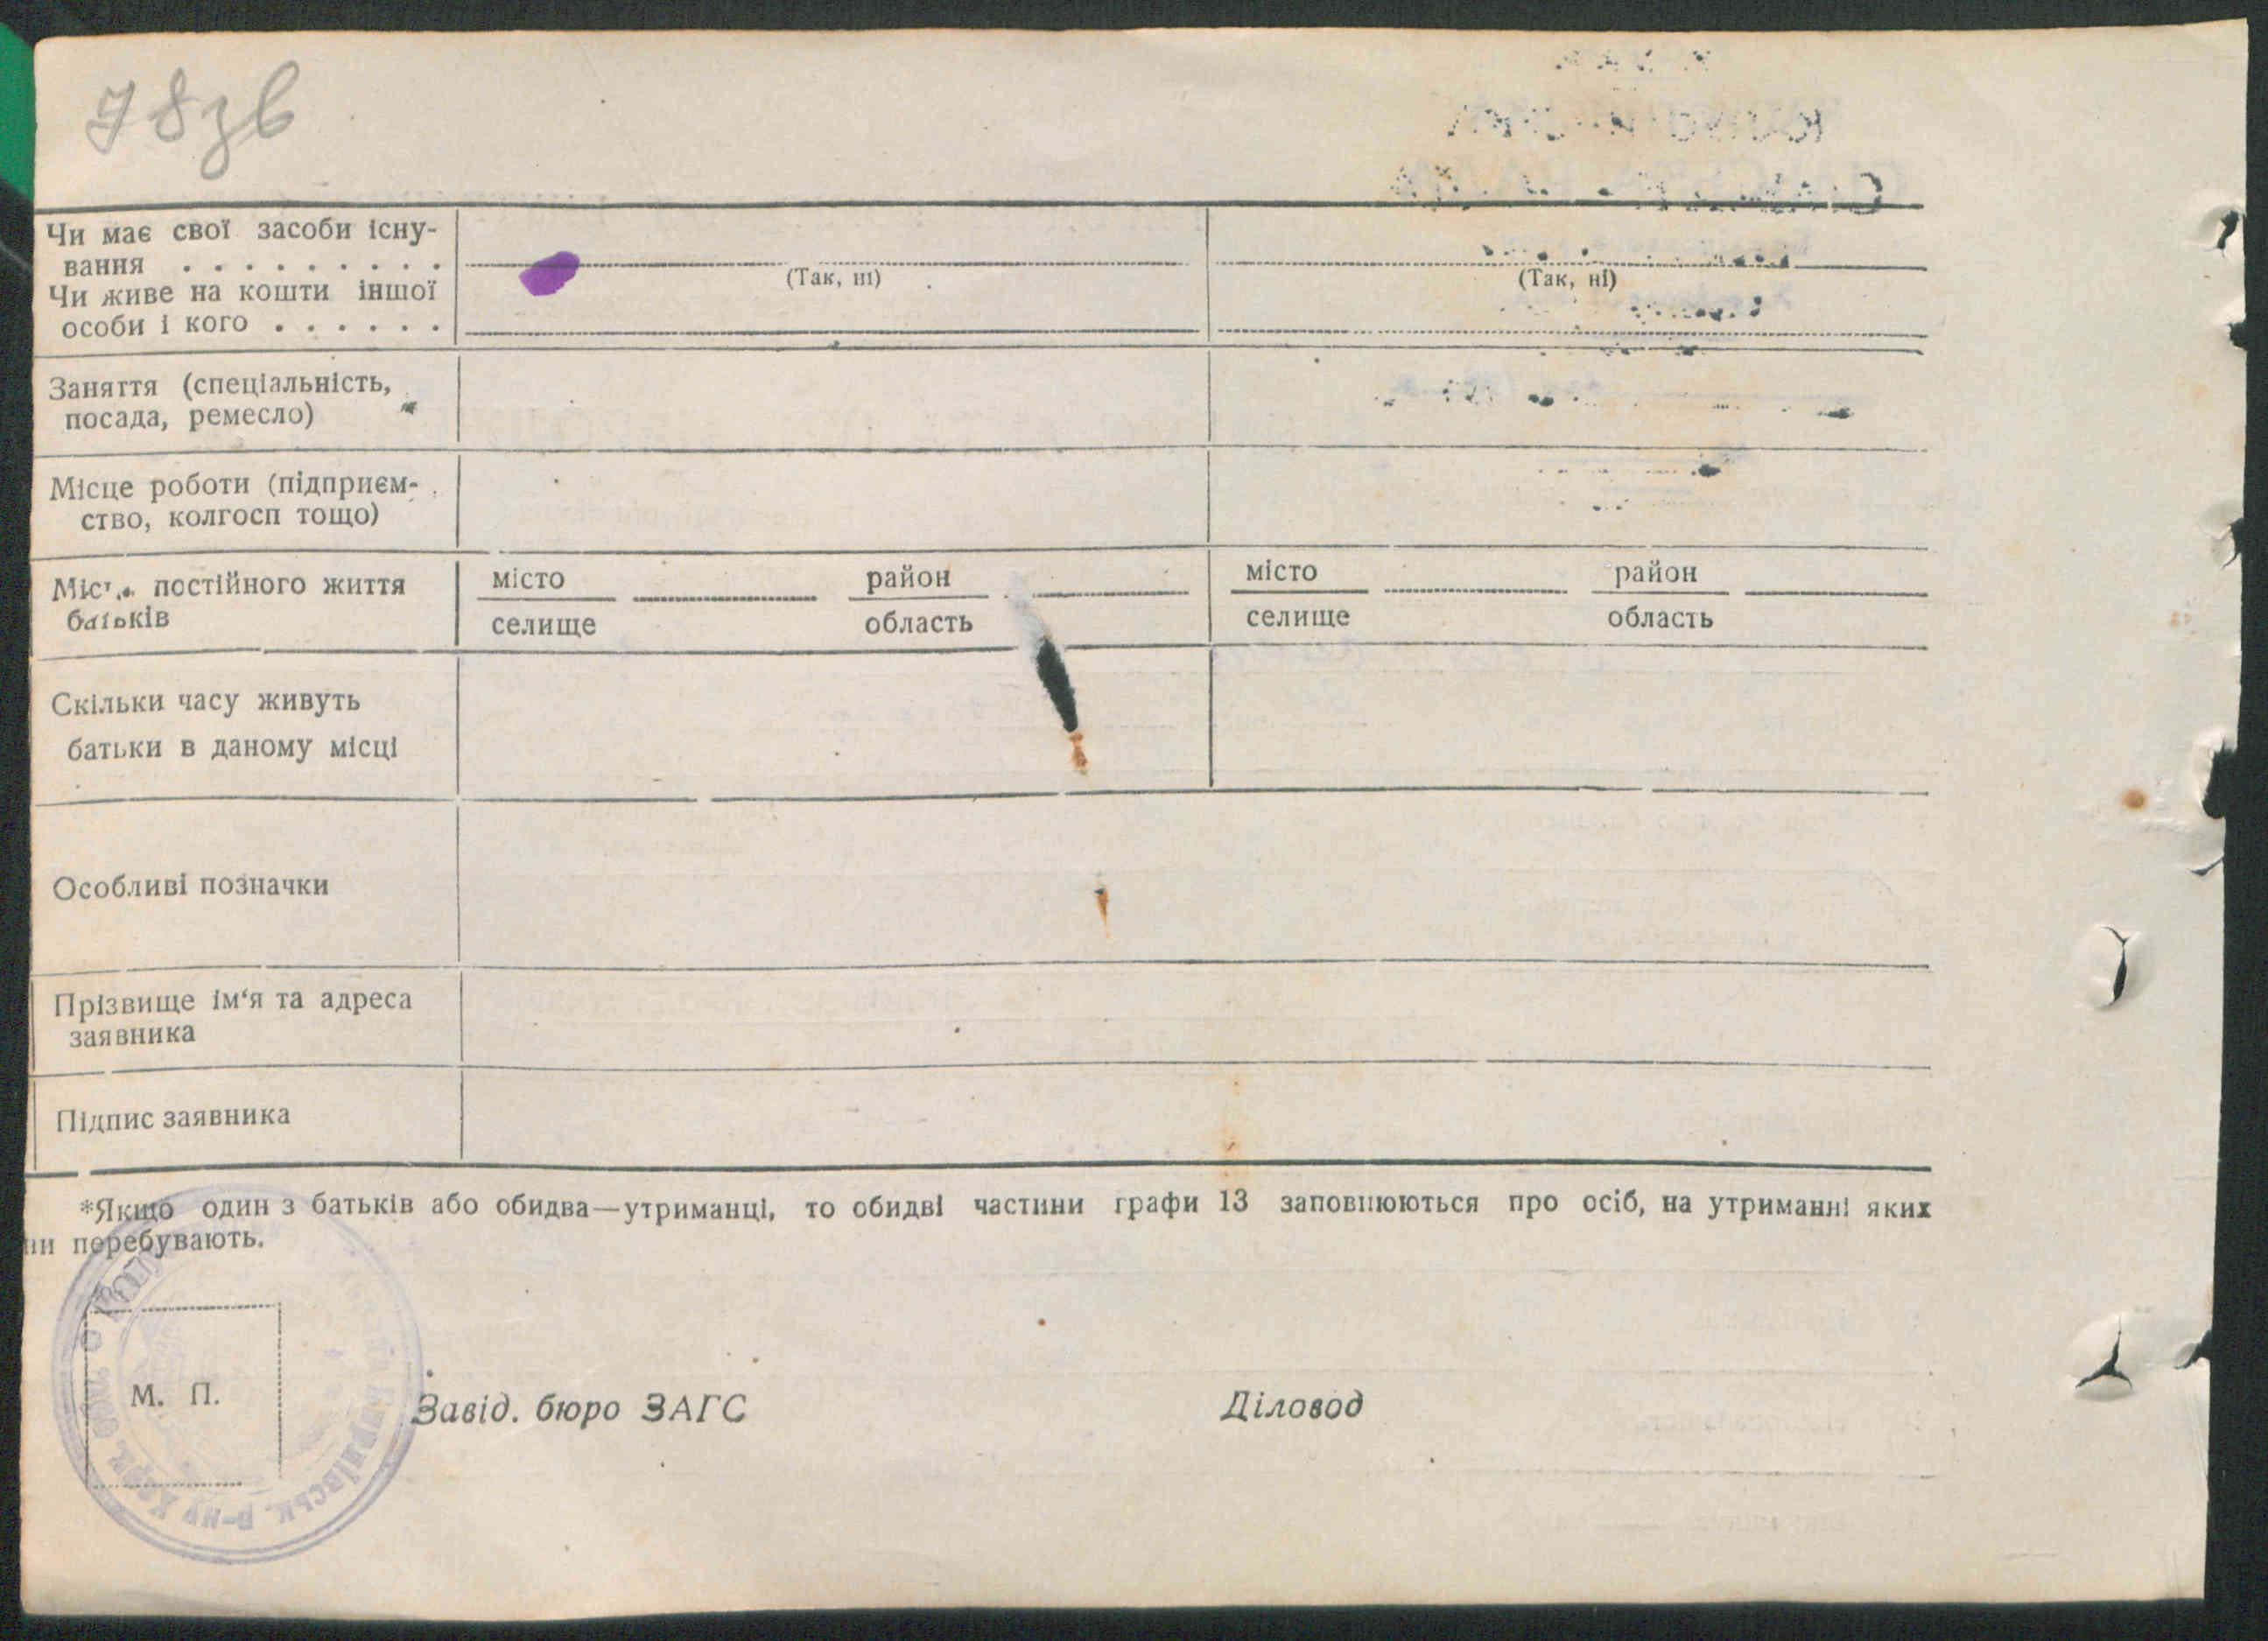 78зв
Чи має свої засоби існу-
вання . . . . . . . . .
(Так, ні) (Так, ні)
Чи живе на кошти іншої
особи і кого . . . . . .
Заняття (спеціальність,
посада, ремесло)
Місце роботи (підприєм-
ство, колгосп тощо)
місто район місто район
постійного життя
батьків
селище область селище область
Скільки часу живуть
батьки в даному місці
Особливі позначки
Прізвище ім‘я та адреса
заявника
Підпис заявника
*Якщо один з батьків або обидва—утриманці, то обидві частини графи 13 заповнюються про осіб, на утриманні яких
ни перебувають.
М. П.
Завід. бюро ЗАГС Діловод